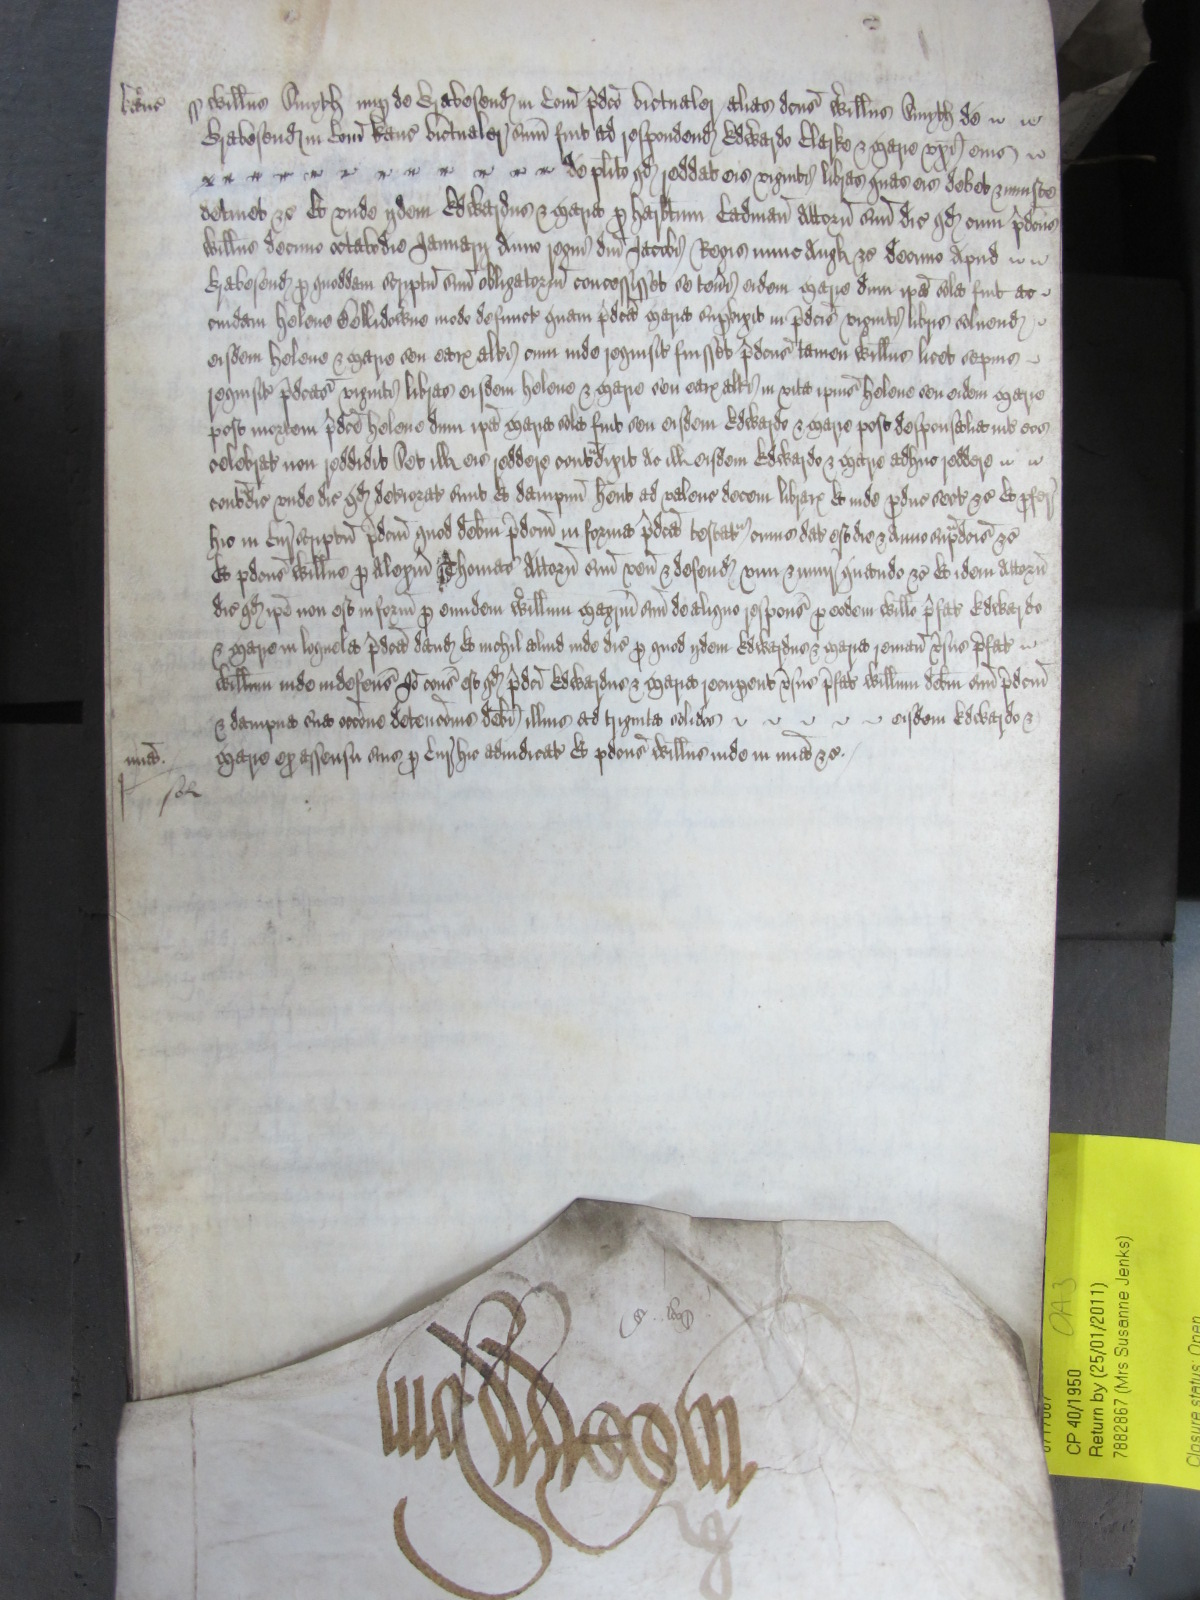 Kanc ss Willus Smyth nup de Gravesend in Com pdco victualer alias dcus Willus Smyth de
Gravesend in Com Kanc victualer sum fuit ad respondend Edwardo Clarke & Marie uxi eius
de plito qd reddat eis viginti libras quas eis debet & iniuste
detinet &c Et unde ijdem Edwardus & Maria p Attorn suu dic qd cum pdcus
Willus decimo octavo die Januarij Anno regni dni Jacobi Regis nunc Angl &c decimo Apud
Gravesend p quoddam scriptu suu obligatoriu concessisset se teneri eidem Marie dum ipa sola fuit ac
cuidam Helene modo defuncte quam pdca Maria supvixit in pdcis viginti libris solvend
eisdem Helene & Marie seu earx alti cum inde requisit fuisset pdcus tamen Willus licet sepius
requisit pdcas viginti libras eisdem Helene & Marie seu earx alti in vita ipius Helene seu eidem Marie
post mortem pdce Helene dum ipa Maria sola fuit seu eisdem Edwardo & Marie post desponsalia int eos
celebrat non reddidit Set ill eis reddere contradixit ac ill eisdem Edwardo & Marie adhuc reddere
contradic unde dic qd deteriorat sunt Et dampnu hent ad valenc decem librax Et inde pduc sect &c Et pfer
hic in Cur scriptu pdcm quod debm pdcm in forma pdca testat cuius dat est die & Anno supadcis &c
Et pdcus Willus p Thomas Attorn suu ven & defend vim & iniur quando &c Et idem Attorn
dic qd ipe non est inform p eundem Willum magrm suu de aliquo respons p eodem Willo pfat Edwardo
& Marie in loquela pdca dand Et nichil aliud inde dic p quod ijdem Edwardus & Maria remanent vsus pfat
Willum inde indefens Io cons est qd pdci Edwardus & Maria recupent vsus pfat Willum debm suu pdcm
& dampna sua occone detencois debi illius ad triginta solidos eisdem Edwardo &
mia. Marie ex assensu suo p Cur hic adiudicat Et pdcus Willus inde in mia &c.
CP 40/1950
Return by (25/01/2011)
7882867 (Mrs Susanne Jenks)
Closure status: Open